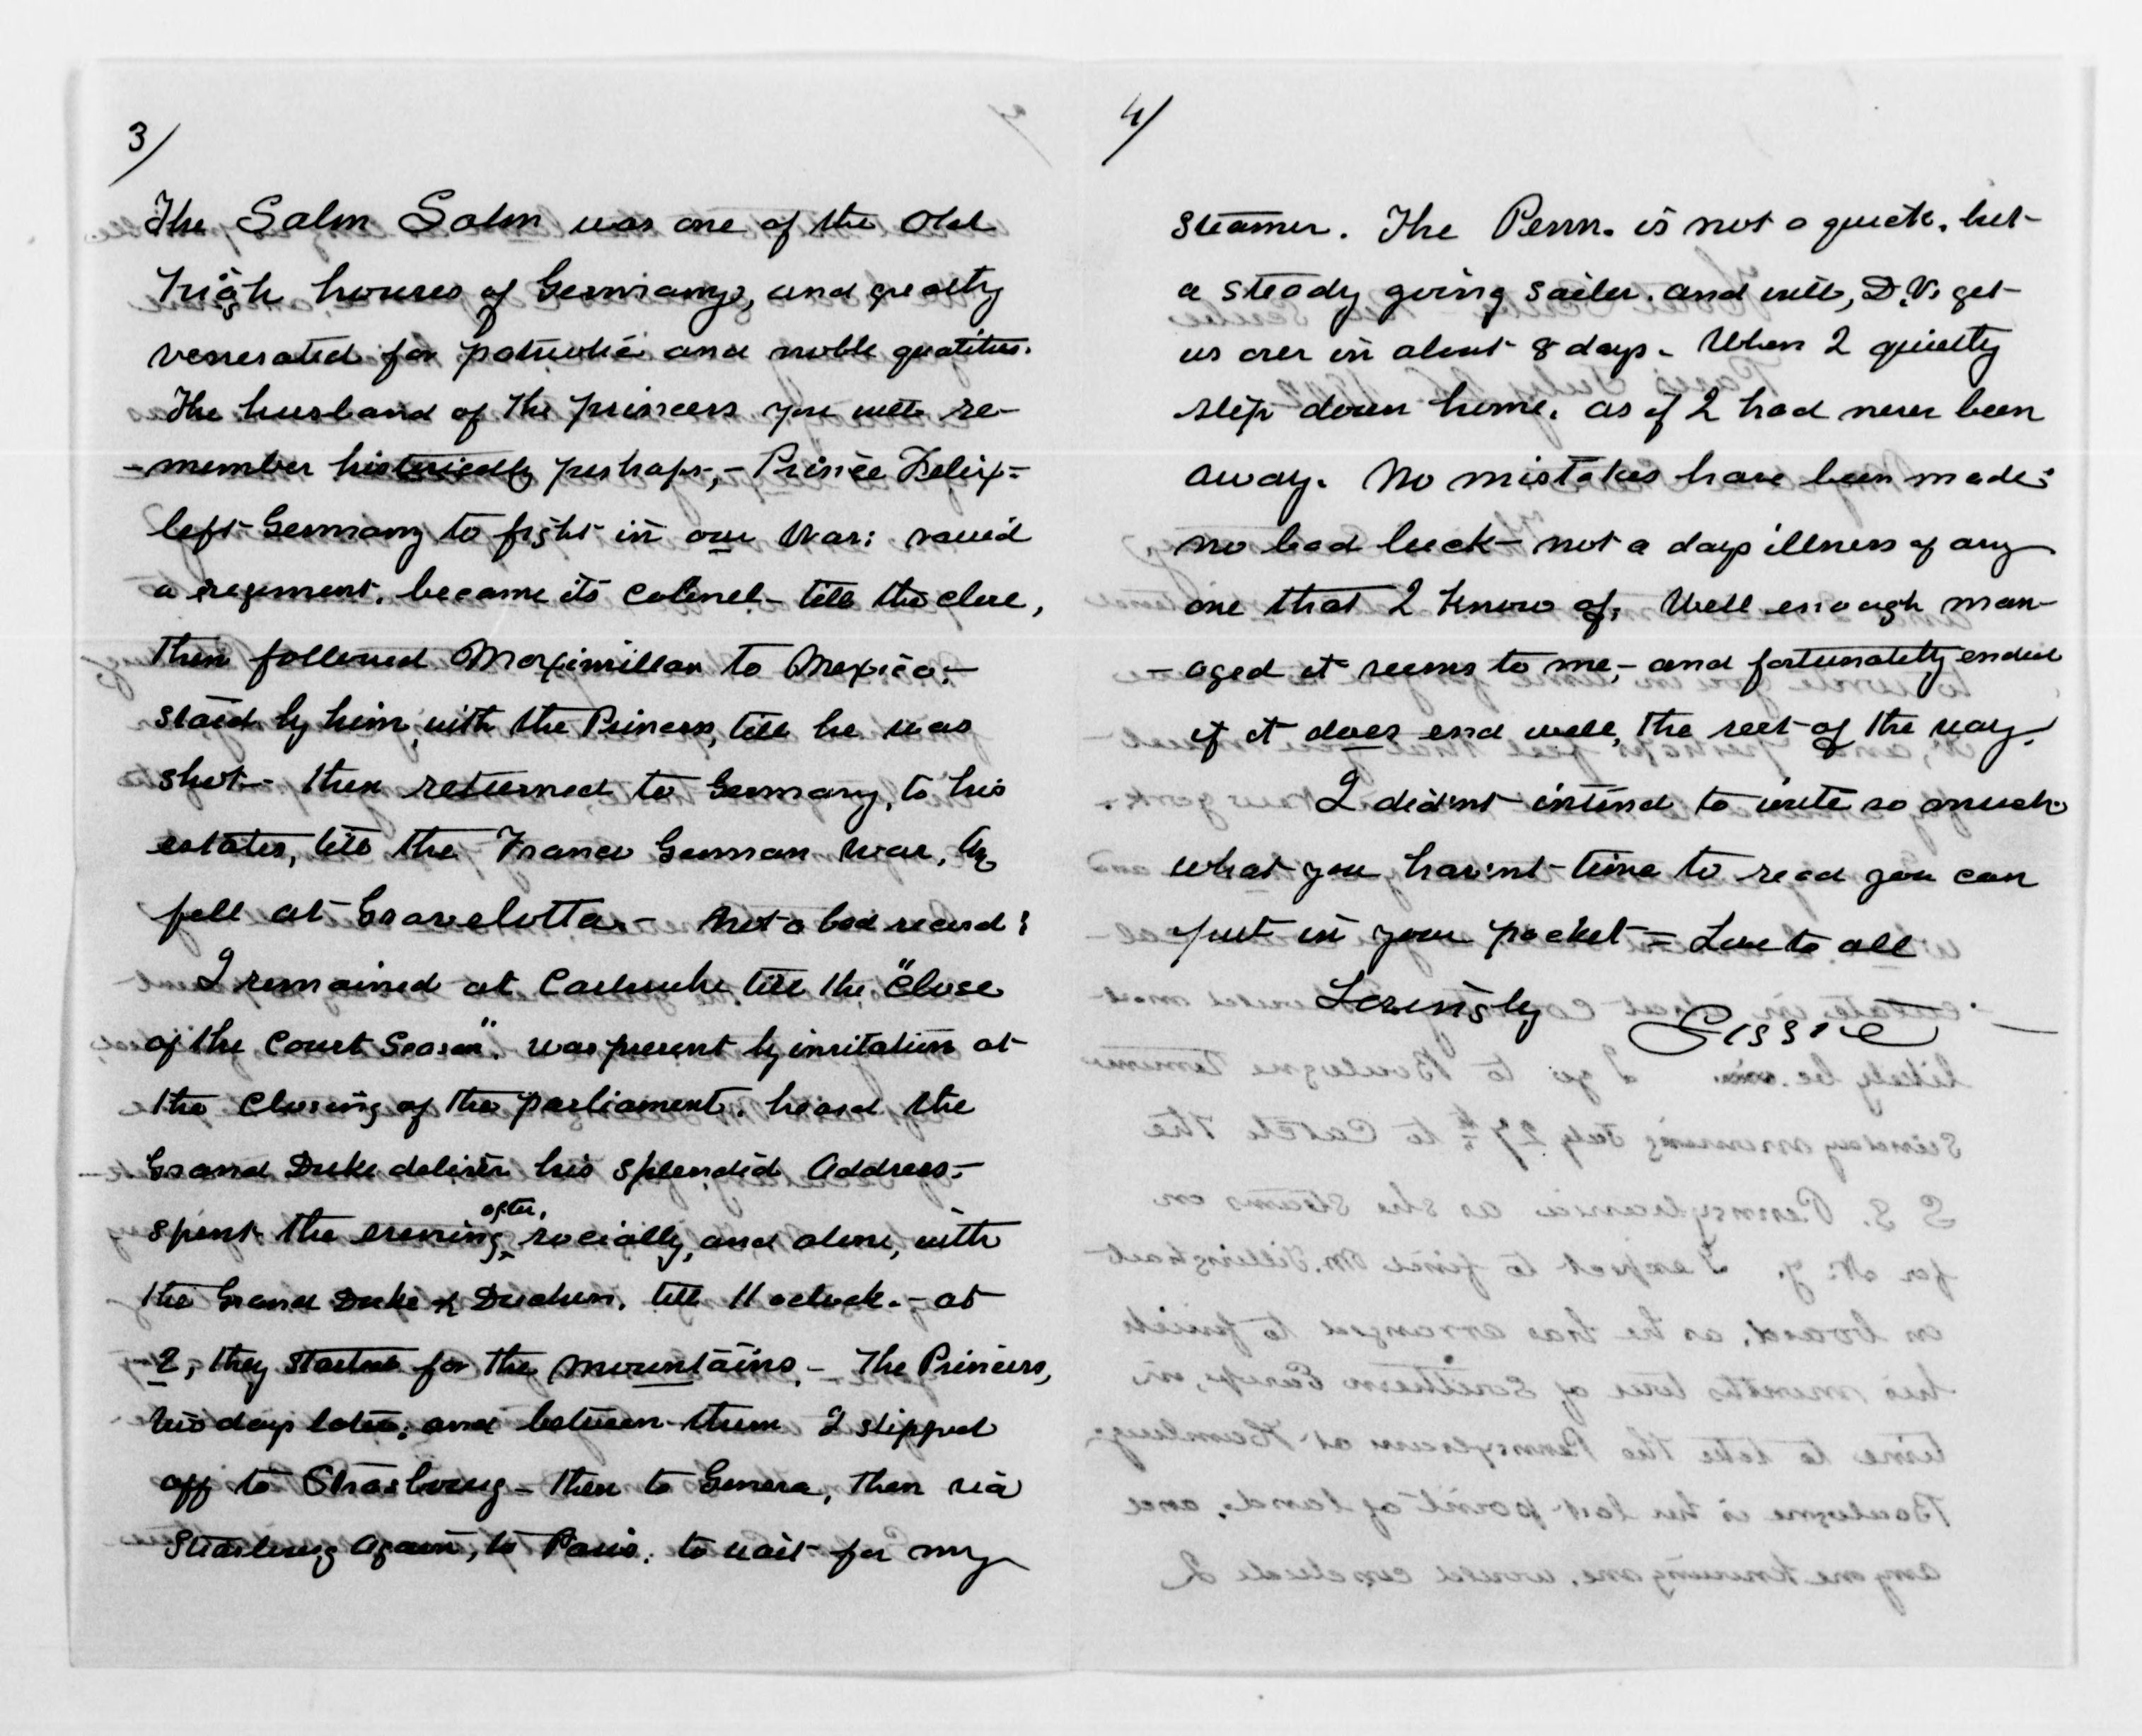 3/
The Salm Salm was one of the old
high houses of Germany, and greatly
venerated for patriotic and noble qualities.
The husband of the princess you will re-
-member historically perhaps, - Prince Felix -
left Germany to fight in our War: raised
a regiment, became its Colonel - till the close,
then followed Maximillan to Mexico. -
staid by him, with the Princess, till he was
shot - then returned to Germany, to his
estates, till the Franco German War,
fell at Gravelotta. - Not a bad record;
I remained at Carlsruhe till the "Close
of the Court Season". was present by invitation at
the Closing of the parliament. heard the
Grand Duke deliver his splendid Address. -
spent the evening after, socially, and alone, with
the Grand Duke & Duchess, till 11 oclock. - at
2, they started for the mountains. - The Princess,
two days later, and between them I slipped
off to Strasbourg - then to Geneva, then via
Strasburg again, to Paris. to wait for my
4/
steamer. The Penn. is not a quick, but
a steady going sailer. and will, D.V. get
us over in about 8 days. When I quietly
step down home, as if I had never been
away. No mistakes have been made:
no bad luck - not a days illness of any
one that I know of. Well enough man-
- aged it seems to me, - and fortunately ended
if it does end well, the rest of the way.
I did'nt intend to write so much.
what you hav'nt time to read you can
put in your pocket = Love to all
Lovingly Sissie